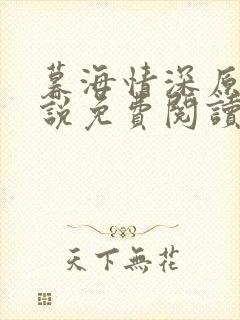 幕海情深原
說免費閱讀
天下無花